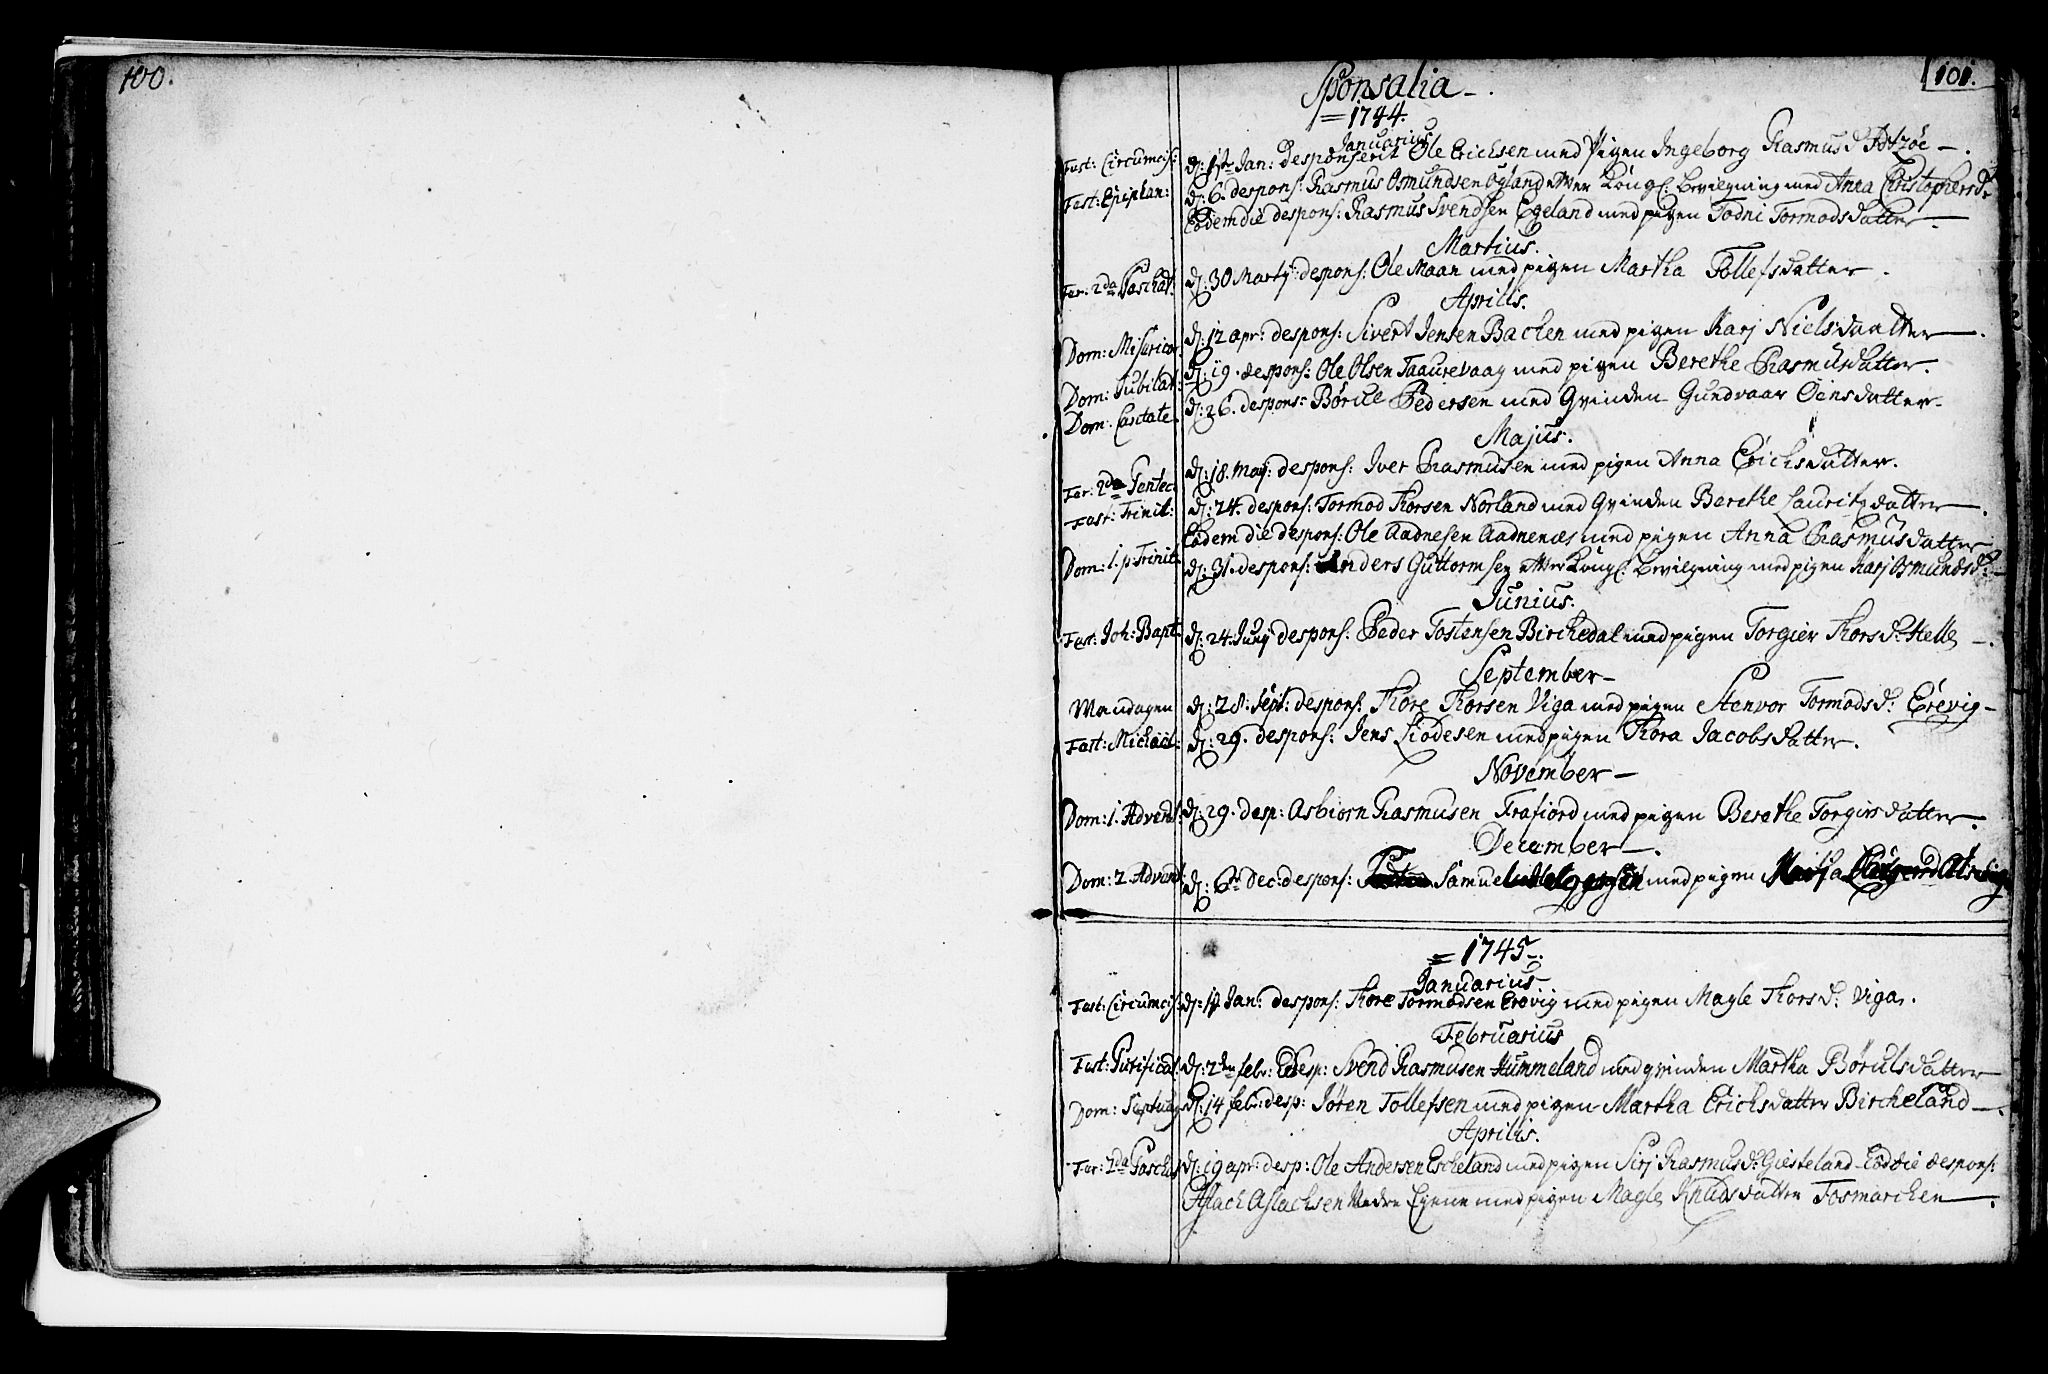 100.
101.
Sponsalia
= 1744.
Januarius
Fest: Circumcis: d: 1ste Jan: desponserit Ole Erichsen med Pigen Ingeborg Rasmusd
Fest: Epiphan: d: 6. despons: Rasmus Osmundsen Øgland efter Kongl: bevilgning med Anna Christophersd:
Eodem die despons: Rasmus Svendsen Egeland med pigen Todni Tormodsdatter
Martius.
Fer: 2da Paschat: d: 30 Martj: despons: Ole Maan med pigen Martha Tollefsdatter.
Aprilis.
Dom: Misericor: d: 12 apr: despons: Sivert Jensen Bachen med pigen Karj Nielsdaatter.
Dom: Jubilat: d: 19. despons: Ole Olsen Taaurevaag med pigen Berethe Rasmusdatter.
Dom: Cantate. d: 26. despons: Børild Pedersen med Qvinden Gundvaar Oensdatter.
Majus.
Fer: 2da Pentec: d: 18. maj: despons: Iver Rasmusen med pigen Anna Erichsdatter.
Fest: Trinit: d: 24. despons: Tormod Thorsen Norland med Qvinden Berethe Lauritzdatter.
Eodem die despons: Ole Aadnesen Aadnenæs med pigen Anna Rasmusdatter
Dom: 1. p: Trinit: d: 31. despons: Anders Guttormsen efter Kongl: bevilgning med pigen Karj Osmundsd:
Junius.
Fest: Joh: Bapt. d: 24. Junj despons: Peder Tostensen Birchedal med pigen Torgier Thorsd: Helle.
September
Mandagen d: 28. Sept: despons: Thore Thorsen Viga med pigen Stenvor Tormodsd: Erevig
Fest: Michael: d: 29. despons: Jens Liodesen med pigen Thora Jacobsdatter.
November
Dom: 1. Advent: d: 29. desp: Asbiorn Rasmusen Frafiord med pigen Berethe Torgirsdatter.
December.
Dom: 2 Advent: d: 6te dec: despons: Samuel Helgesen med pigen
= 1745.
Januarius
Fest: Circumcis: d: 1 Jan: despons: Thore Tormodsen Erevig med pigen Magle Thorsd: Viga.
Februarius
Fest: Purificat: d: 2den febr: desp: Svend Rasmusen Hummeland med qvinden Martha Børulsdatter
Dom: Septuag: d: 14 febr: desp: Jøren Tollefsen med pigen Martha Erichsdatter Bircheland.
Aprilis.
Fer: 2da Paschat: d: 19 apr: desp: Ole Andersen Escheland med pigen Sirj Rasmusd: Giesteland Eod die despons:
Aslach Aslachsen Nedre Egene med pigen Magle Knudsdatter Fosmarchen.